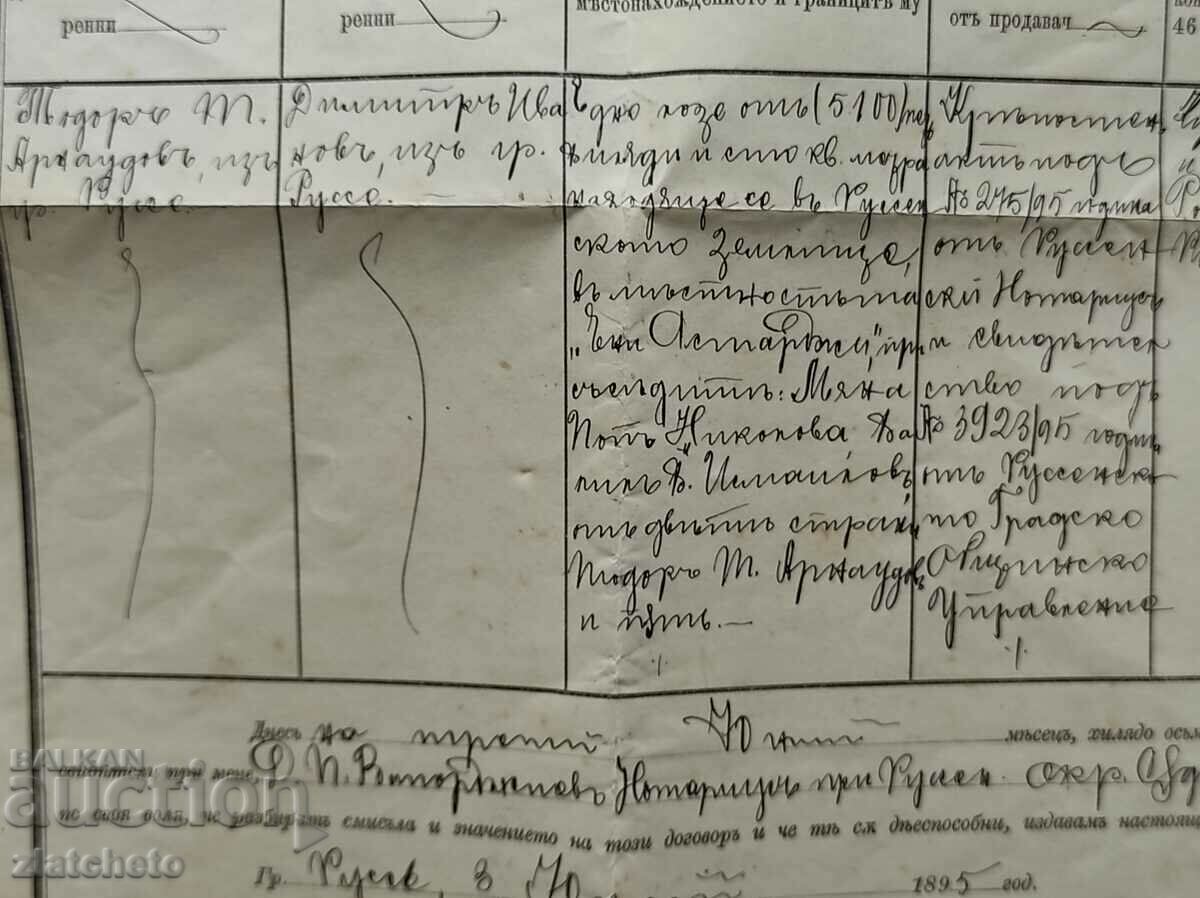 ренни
ренни
мѣстонахождението и границитѣ му
отъ продавач
46
Тодоръ Т.
Арнаудовъ, изъ
гр. Руссе.
Димитръ Ива
новъ, изъ гр.
Руссе.
Едно лозе отъ (5100) пет
хиляди и сто кв. метра
находяще се въ Руссен
ското Землище,
въ мѣстностьта
„Ени Астарджи", при
съседитѣ:
Попъ Никохова
отъ двѣтѣ страни
Тодоръ Т. Арнаудовъ
и пѫть.—
./.
Крѣпостен
актъ подъ
№ 275/95 година
отъ Руссен
ский Нотариусъ
и свидѣтел
ство подъ
№ 3923/95 годин
отъ Руссенско
то Градско
Общинско
Управление
./.
Днесъ на третий Юний мѣсецъ, хилядо осъм
при мене, П. Нотариусъ при Руссен. Окр. Съд
не разбиратъ смисъла и значението на този договоръ и че тѣ сѫ дѣеспособни, издавамъ настоящ
Гр. Руссе, 3 Ю 1895 год.
BALKAN
auction
zlatcheto